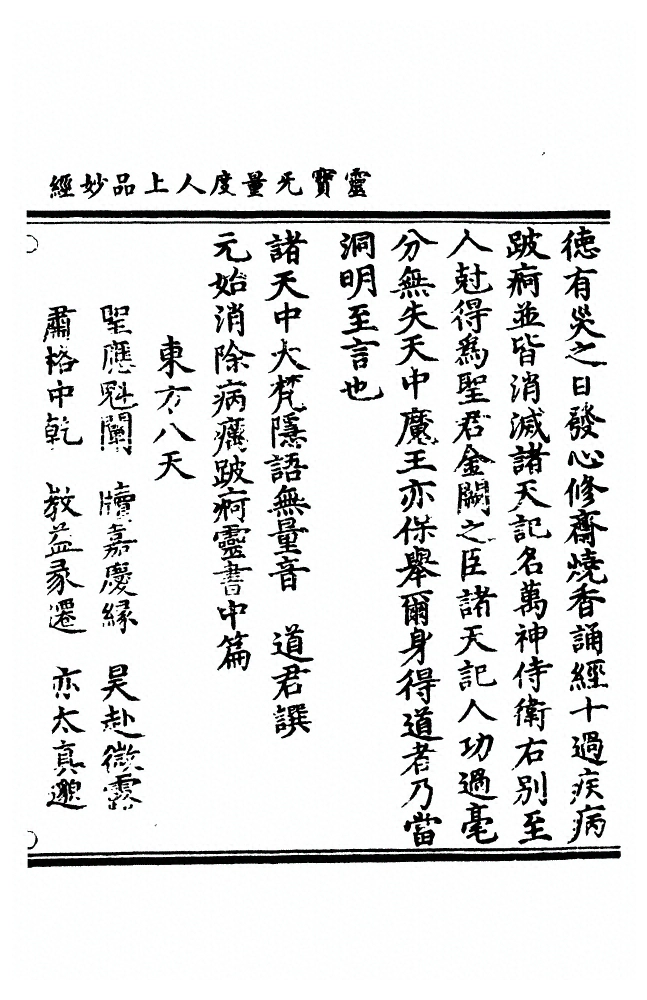 靈寶无量度人上品妙經
德有災之日發心修齋燒香誦經十過疾病
跛痾並皆消滅諸天記名萬神侍衛右別至
人尅得為聖君金闕之臣諸天記人功過毫
分無失天中魔王亦保舉爾身得道者乃當
洞明至言也
諸天中大梵隱語無量音 道君譔
元始消除病癘跛痾靈書中篇
東方八天
聖應魁闡 嘉慶緣 昊赴微露
肅格中乾 教益彖遷 亦太真邈